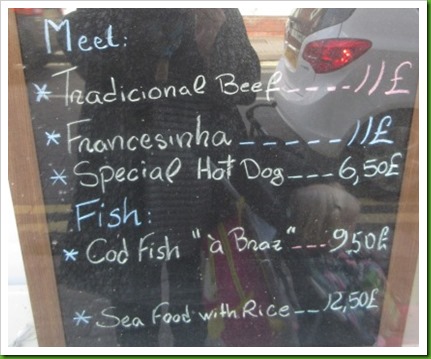 Meet:
* Tradicional Beef----11£
* Francesinha -----11£
* Special Hot Dog---6,50£
Fish:
* Cod Fish "à Braz"---9,50£
* Sea Food with Rice--12,50£